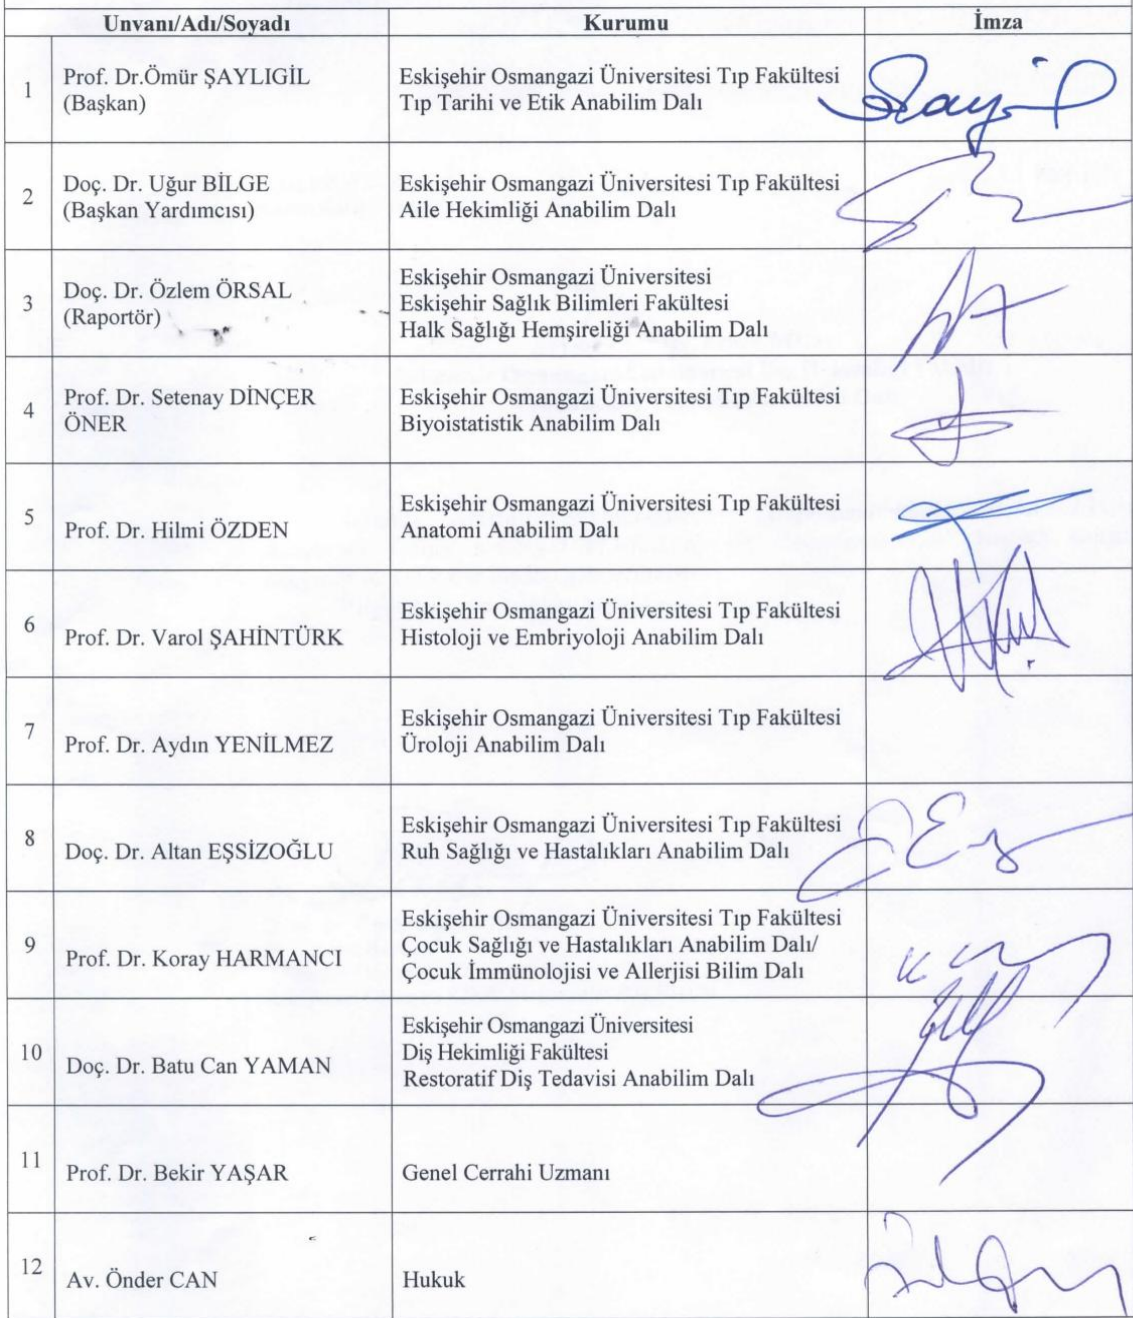 Unvanı/Adı/Soyadı Kurumu İmza
1 Prof. Dr.Ömür ŞAYLIGİL
(Başkan)
Eskişehir Osmangazi Üniversitesi Tıp Fakültesi
Tıp Tarihi ve Etik Anabilim Dalı
2 Doç. Dr. Uğur BİLGE
(Başkan Yardımcısı)
Eskişehir Osmangazi Üniversitesi Tıp Fakültesi
Aile Hekimliği Anabilim Dalı
3 Doç. Dr. Özlem ÖRSAL
(Raportör)
Eskişehir Osmangazi Üniversitesi
Eskişehir Sağlık Bilimleri Fakültesi
Halk Sağlığı Hemşireliği Anabilim Dalı
4 Prof. Dr. Setenay DİNÇER
ÖNER
Eskişehir Osmangazi Üniversitesi Tıp Fakültesi
Biyoistatistik Anabilim Dalı
5 Prof. Dr. Hilmi ÖZDEN
Eskişehir Osmangazi Üniversitesi Tıp Fakültesi
Anatomi Anabilim Dalı
6 Prof. Dr. Varol ŞAHİNTÜRK
Eskişehir Osmangazi Üniversitesi Tıp Fakültesi
Histoloji ve Embriyoloji Anabilim Dalı
7 Prof. Dr. Aydın YENİLMEZ
Eskişehir Osmangazi Üniversitesi Tıp Fakültesi
Üroloji Anabilim Dalı
8 Doç. Dr. Altan EŞSİZOĞLU
Eskişehir Osmangazi Üniversitesi Tıp Fakültesi
Ruh Sağlığı ve Hastalıkları Anabilim Dalı
9 Prof. Dr. Koray HARMANCI
Eskişehir Osmangazi Üniversitesi Tıp Fakültesi
Çocuk Sağlığı ve Hastalıkları Anabilim Dalı/
Çocuk İmmünolojisi ve Allerjisi Bilim Dalı
10 Doç. Dr. Batu Can YAMAN
Eskişehir Osmangazi Üniversitesi
Diş Hekimliği Fakültesi
Restoratif Diş Tedavisi Anabilim Dalı
11 Prof. Dr. Bekir YAŞAR
Genel Cerrahi Uzmanı
12 Av. Önder CAN
Hukuk